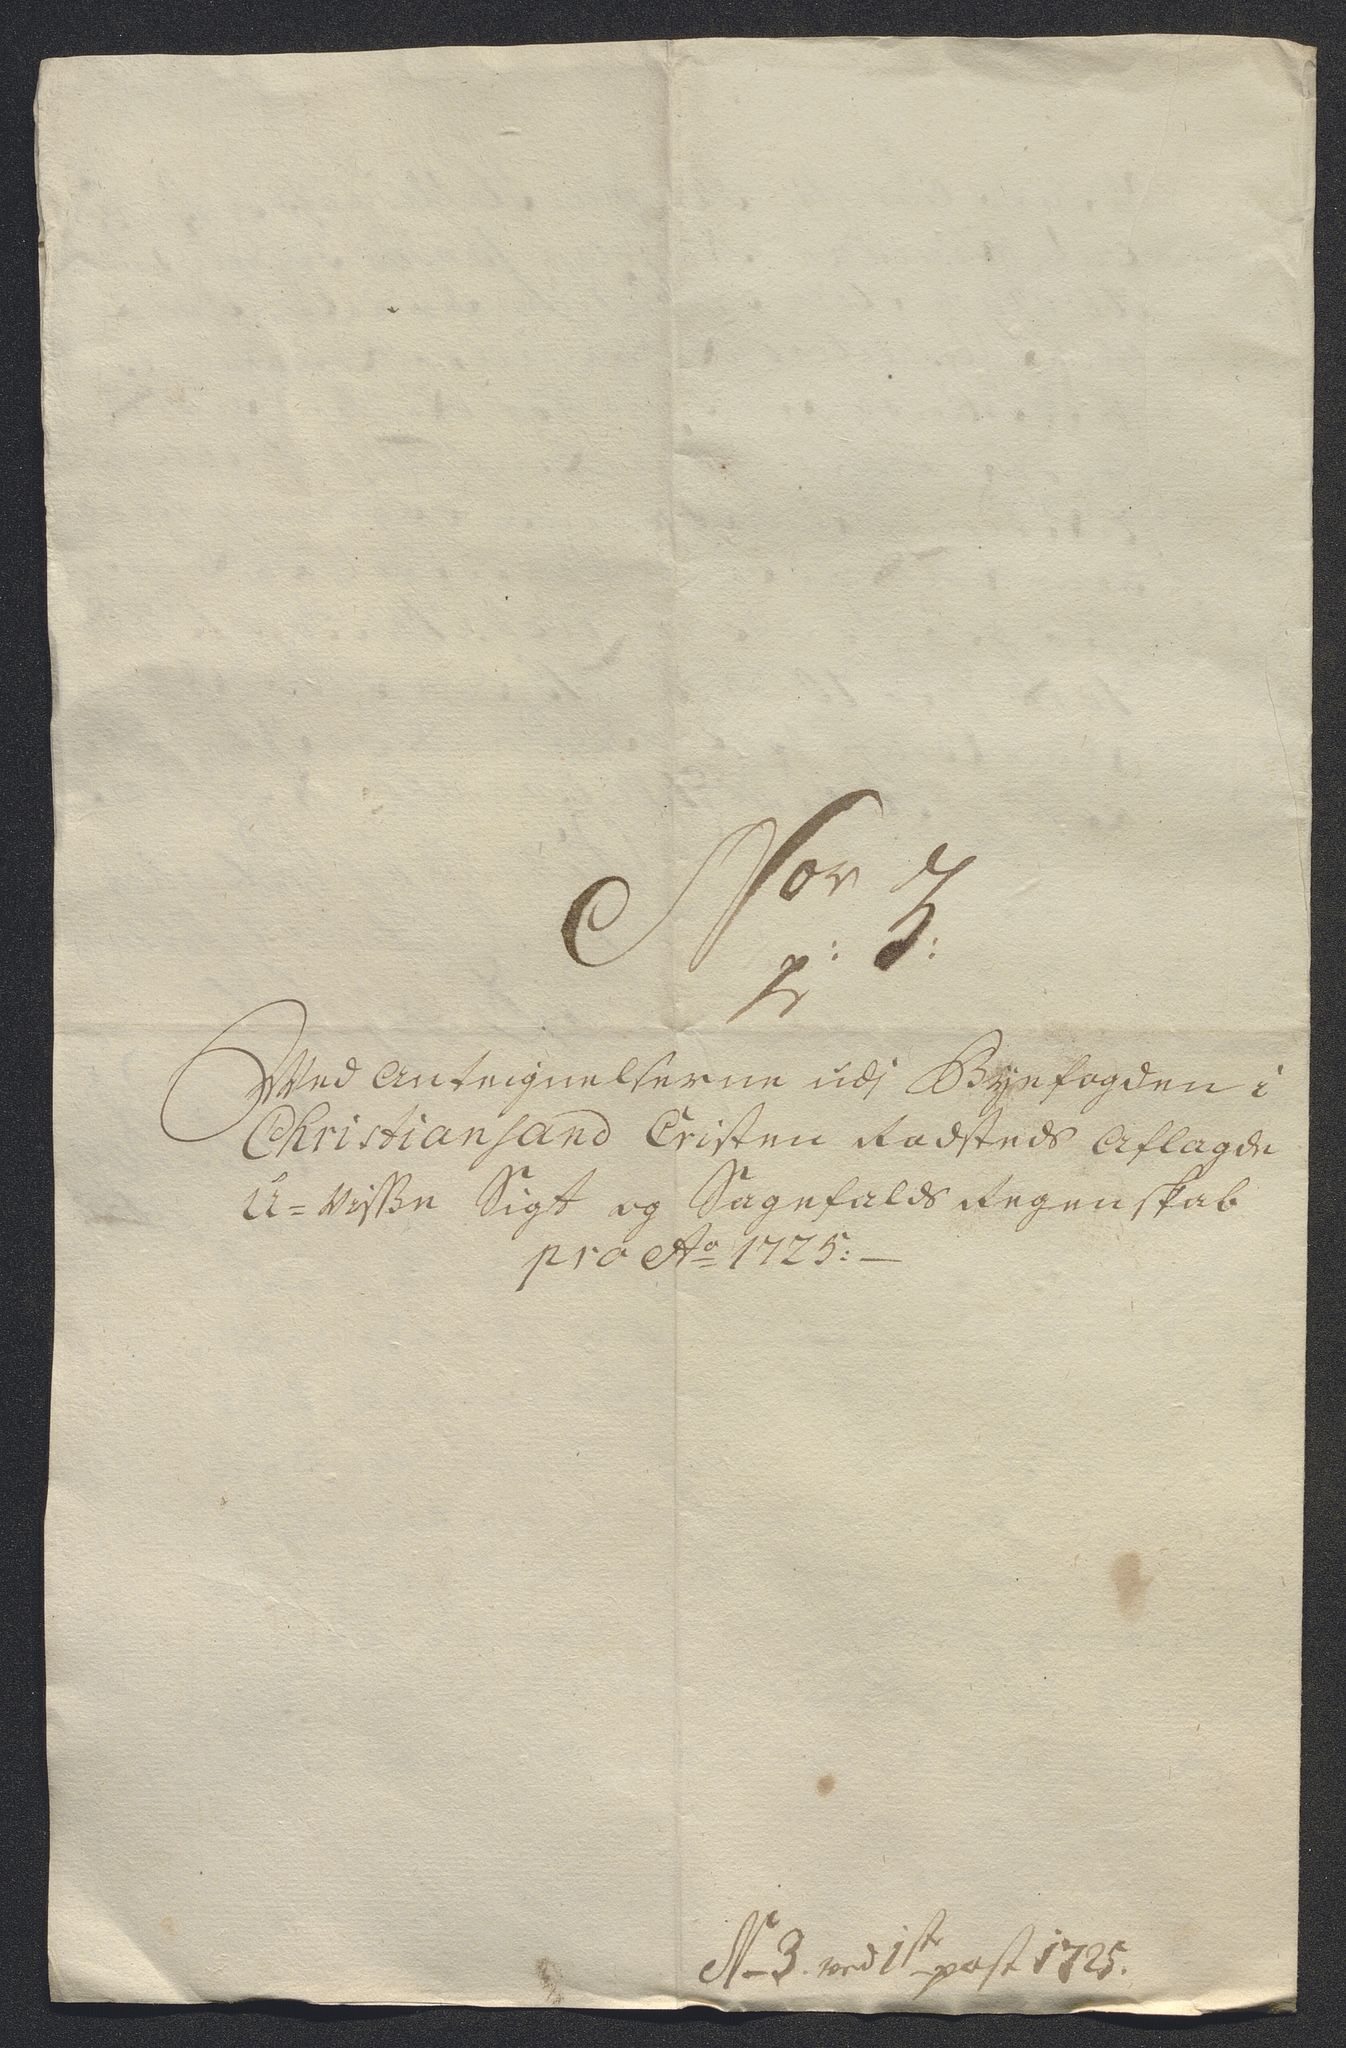 Nor 3
p: 3:
Ved Anteignelserne udj Byefogden i
Christiansand Cristen Rodsteds Aflagde
U=visse Sigt og Sagefalds Regenskab
pro Ao 1725:—
No 3. ved 1ste post 1725.